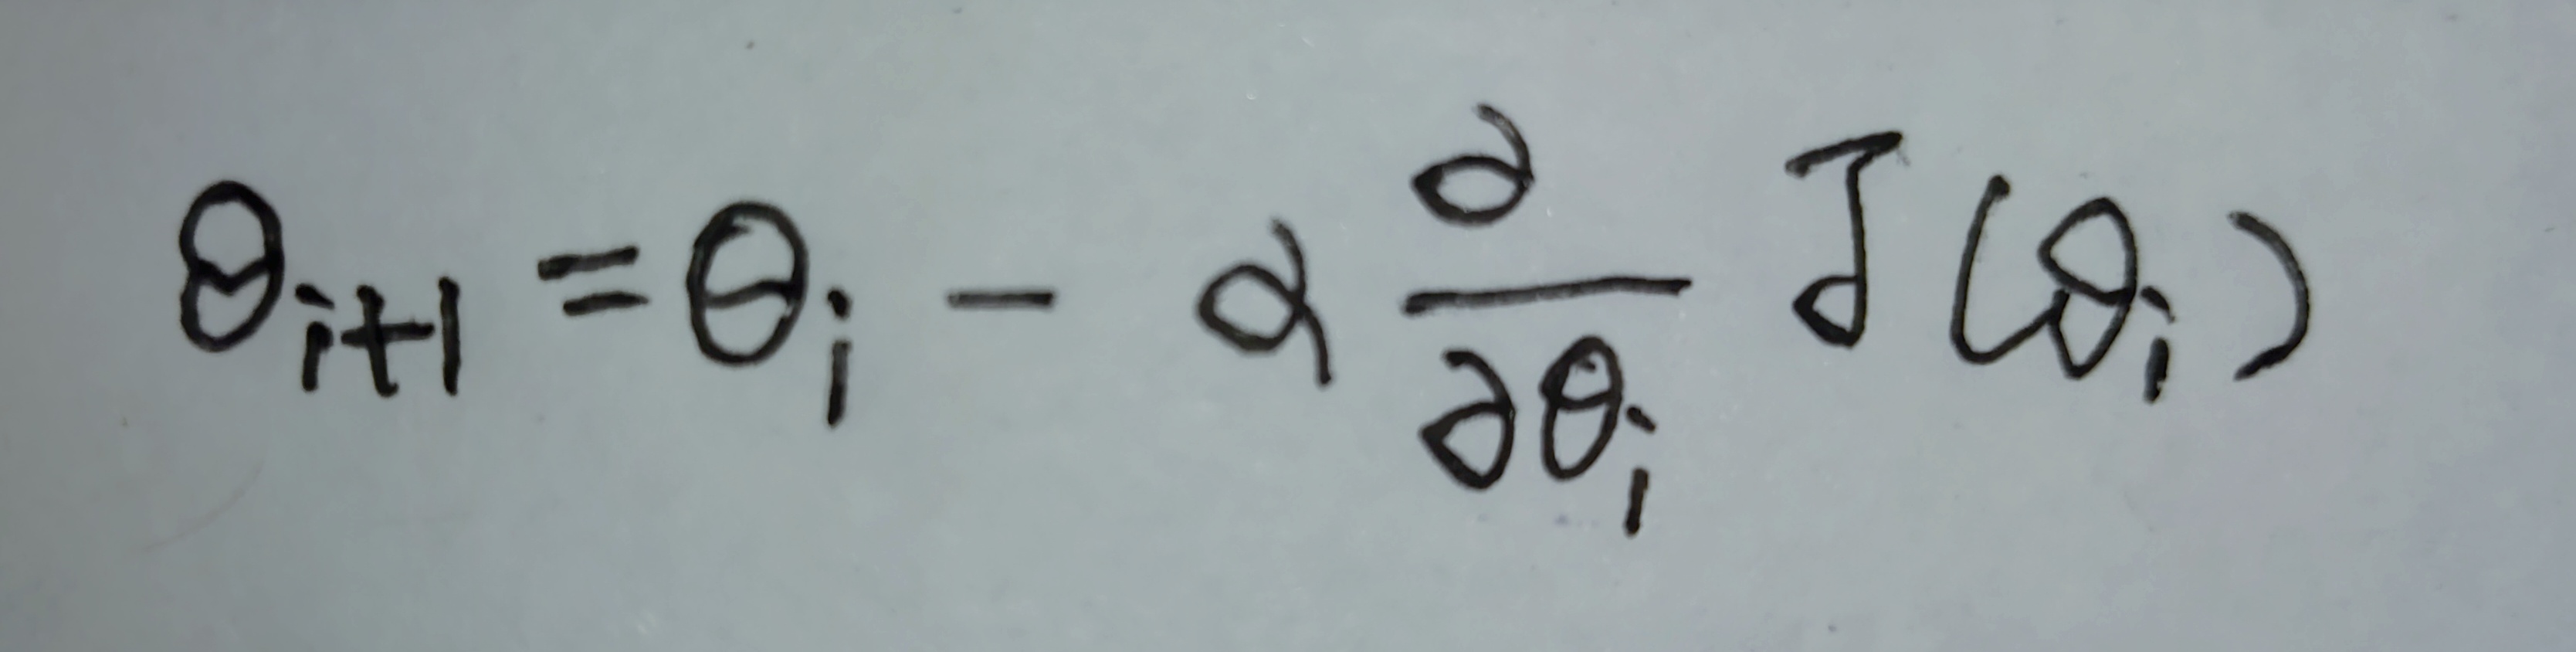 θ_{i+1} = θ_i - α \frac{∂}{∂θ_i} J(θ_i)